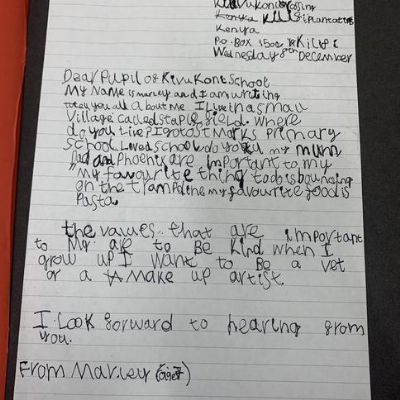 Kenya
Po-Box 1500 Kilifi
Wednesday 8th December
Dear Pupil of Kivukoni School
My Name is marley and I am writing
to tell you all about me I Live in a small
Village called staplefield. where
do you live? I go to st Marks primary
School. I love school do you my mum
Dad and Phoenix are important to my
my favourite thing to do is bouncing
on the trampoline my favourite food is
Pasta
the values that are important
to my are to Be kind when I
grow up I want to Be a vet
or a make up artist.
I Look forward to hearing from
you.
From Marley (age 7)